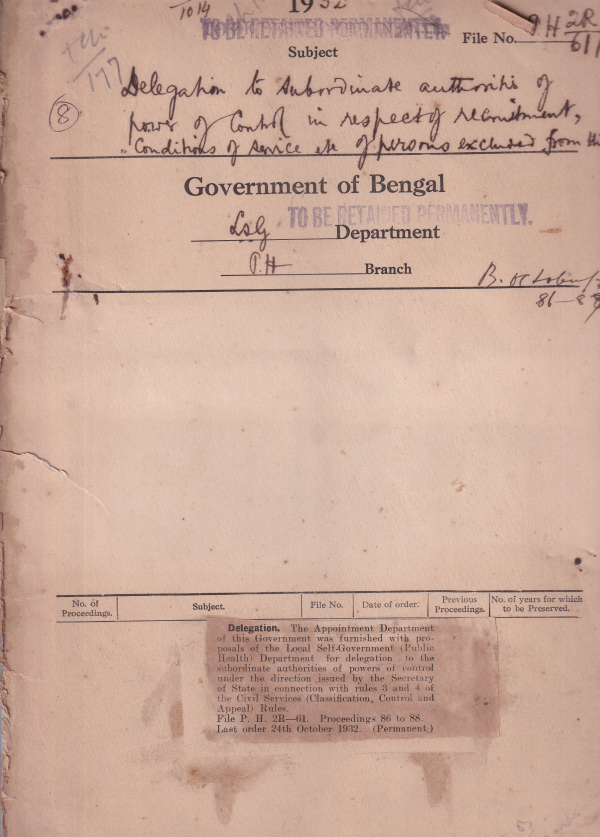 1932
1014
TO BE RETAINED PERMANENTLY.
File No. P H 2R
61
Subject
177
Delegation to subordinate authorities of
(8)
power of Control in respect of recruitment,
Conditions of service etc of persons excluded from
Government of Bengal
TO BE RETAINED PERMANENTLY.
LSG Department
P.H Branch
B. October
86—88
No. of Proceedings. Subject. File No. Date of order. Previous Proceedings. No. of years for which to be Preserved.
Delegation. The Appointment Department
of this Government was furnished with pro-
posals of the Local Self-Government (Public
Health) Department for delegation to the
subordinate authorities of powers of control
under the direction issued by the Secretary
of State in connection with rules 3 and 4 of
the Civil Services (Classification, Control and
Appeal) Rules.
File P. H. 2R—61. Proceedings 86 to 88.
Last order 24th October 1932. (Permanent.)